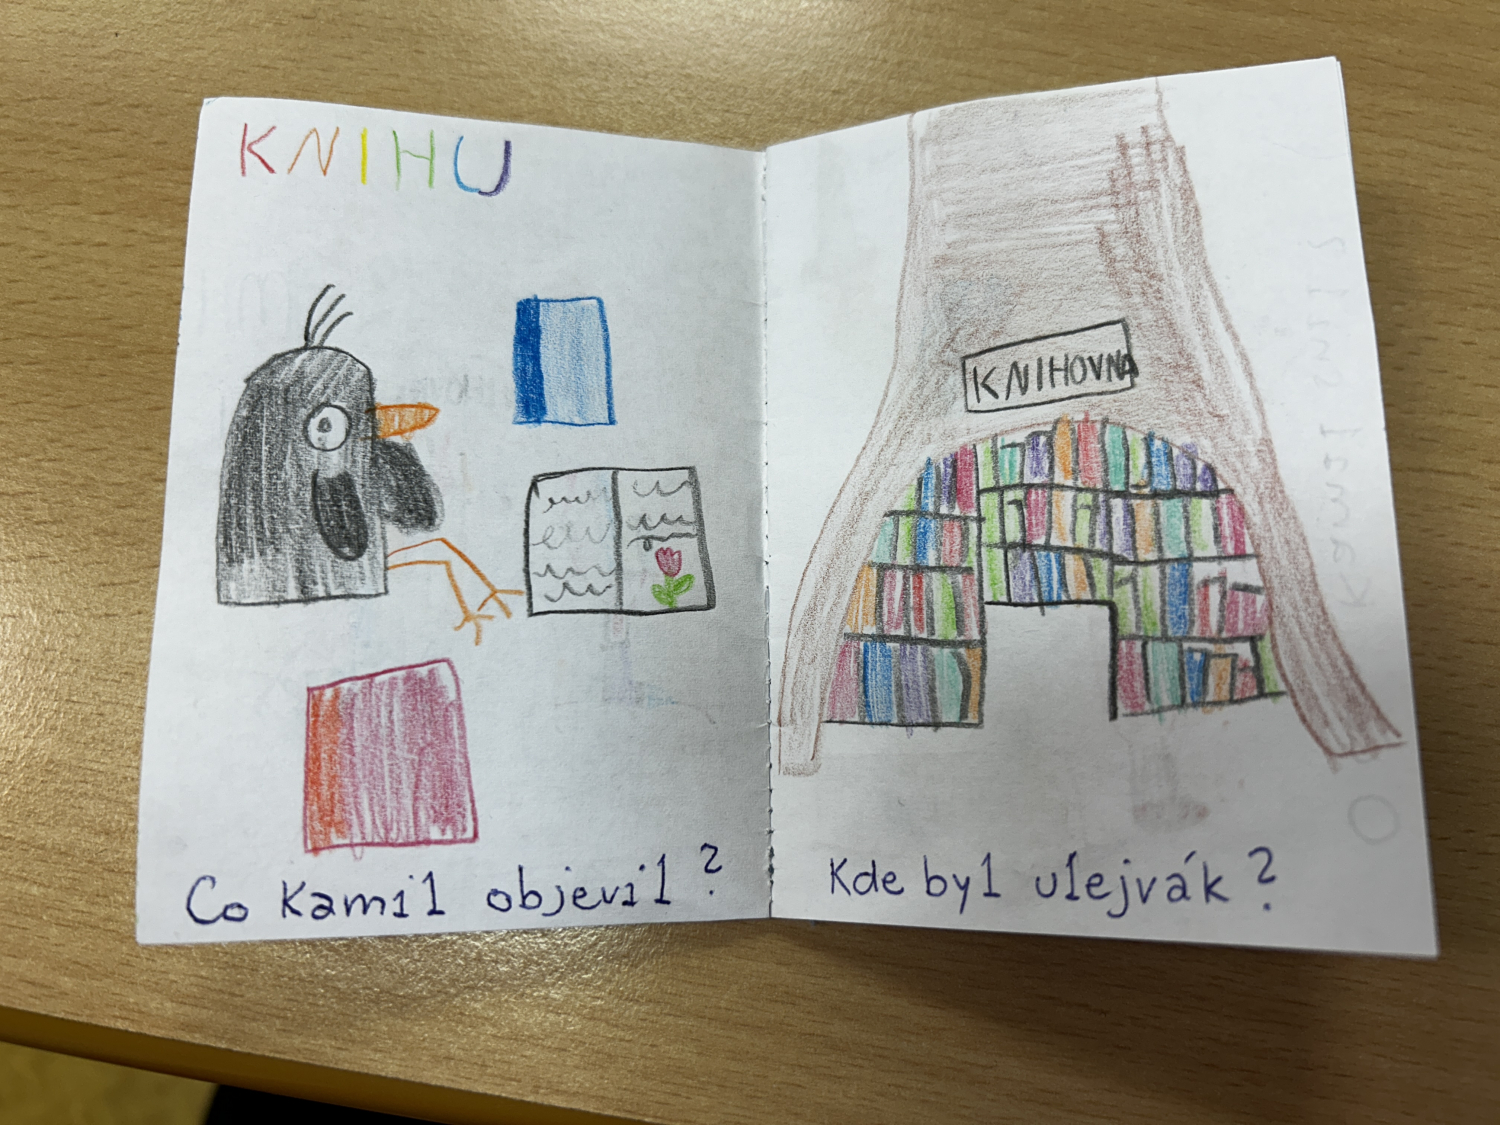 KNIHU
Co Kamil objevil?
KNIHOVNA
Kde byl ulejvák?